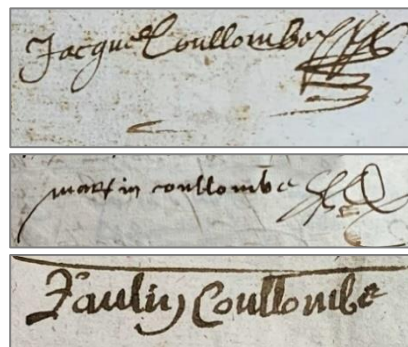 Jacques Coullombe
martin coullombe
Paulin Coullombe